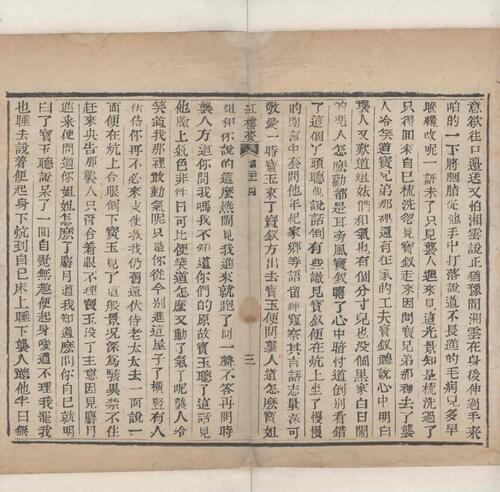 意欲往口邊送又怕湘雲說正猶豫間湘雲在身後伸過手來
咱的一下將胭脂從他手中打落說道不長進的毛病兒多早
晚纔改呢一語未了只見襲人進來見這光景知是梳洗過了
只得回來自己梳洗忽見寶釵走來因問寶兄弟那裡去了襲
人冷笑道寶兄弟那裡還有在家的工夫寶釵聽說心中明白
襲人又歎道姐妹們和氣也有個分寸兒也沒個黑家白日鬧
的憑人怎麽勸都是耳旁風寶釵聽了心中暗忖道倒別看錯
了這個丫頭聽他說話倒有些識見寶釵便在炕上坐了慢慢
的閒言中套問他年紀家鄉等語留神窺察其言語志量深可
敬愛一時寶玉來了寶釵方出去寶玉便問襲人道怎麽寶姐
紅樓夢 第二十一回 三
姐和你說的這麽熱鬧見我進來就跑了問一聲不答再問時
襲人方道你問我嗎我不知道你們的原故寶玉聽了這話見
他臉上氣色非往日可比便笑道怎麽又動了氣了呢襲人冷
笑道我那裡敢動氣呢只是你從今別進這屋子了橫豎有人
伏侍你再不必來支使我我仍舊還伏侍老太太去一面說一
面便在炕上合眼倒下寶玉見了這般景況深為駭異禁不住
赶來央告那襲人只管合着眼不理寶玉沒了主意因見麝月
進來便問道你姐姐怎麽了麝月道我知道麽問你自己就明
白了寶玉聽說呆了一回自覺無趣便起身噯道不理我罷我
也睡去說着便起身下炕到自己床上睡下襲人聽他半日無